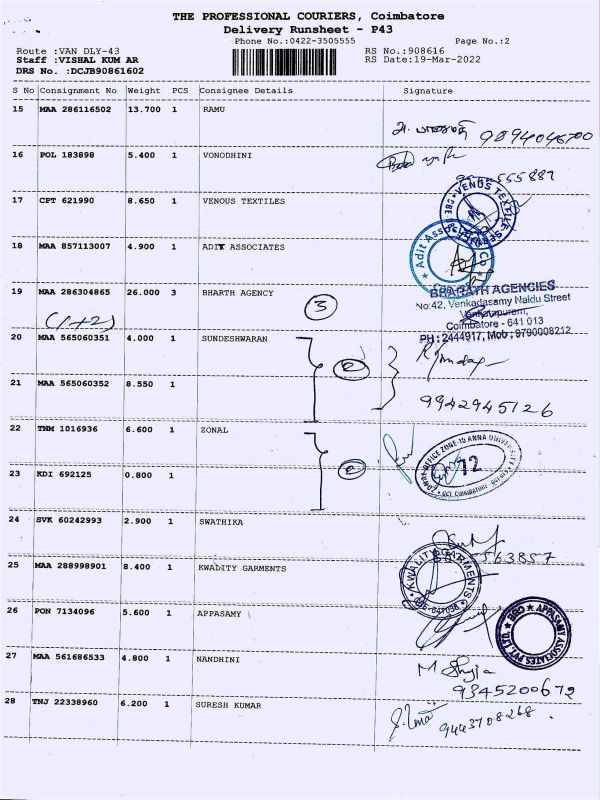 THE PROFESSIONAL COURIERS, Coimbatore
Delivery Runsheet - P43
Phone No.:0422-3505555 Page No.:2
Route :VAN DLY-43 RS No.:908616
Staff :VISHAL KUM AR RS Date:19-Mar-2022
DRS No. :DCJB90861602
S No Consignment No Weight PCS Consignee Details Signature
15 MAA 286116502 13.700 1 RAMU
9894046700
16 POL 183898 5.400 1 VONODHINI
17 CPT 621990 8.650 1 VENOUS TEXTILES
VENUS TEXTILE
18 MAA 857113007 4.900 1 ADIT ASSOCIATES
Adit Asso
19 MAA 286304865 26.000 3 BHARTH AGENCY
(1+2) 3
BHARATH AGENCIES
No:42, Venkadasamy Naidu Street
Venkatapuram,
Coimbatore - 641 013
PH : 2444917, Mob : 9790008212
20 MAA 565060351 4.000 1 SUNDESHWARAN
2
21 MAA 565060352 8.550 1
9942945126
22 TNM 1016936 6.600 1 ZONAL
ZONAL OFFICE ZONE-10 ANNA UNIVERSITY
12
23 KDI 692125 0.800 1
24 SVK 60242993 2.900 1 SWATHIKA
63857
25 MAA 288998901 8.400 1 KWALITY GARMENTS
KWALITY GARMENTS
26 PON 7134096 5.600 1 APPASAMY
APPASAMY ASSOCIATES PVT. LTD.
27 MAA 561686533 4.800 1 NANDHINI
9345200672
28 TNJ 22338960 6.200 1 SURESH KUMAR
9443708268